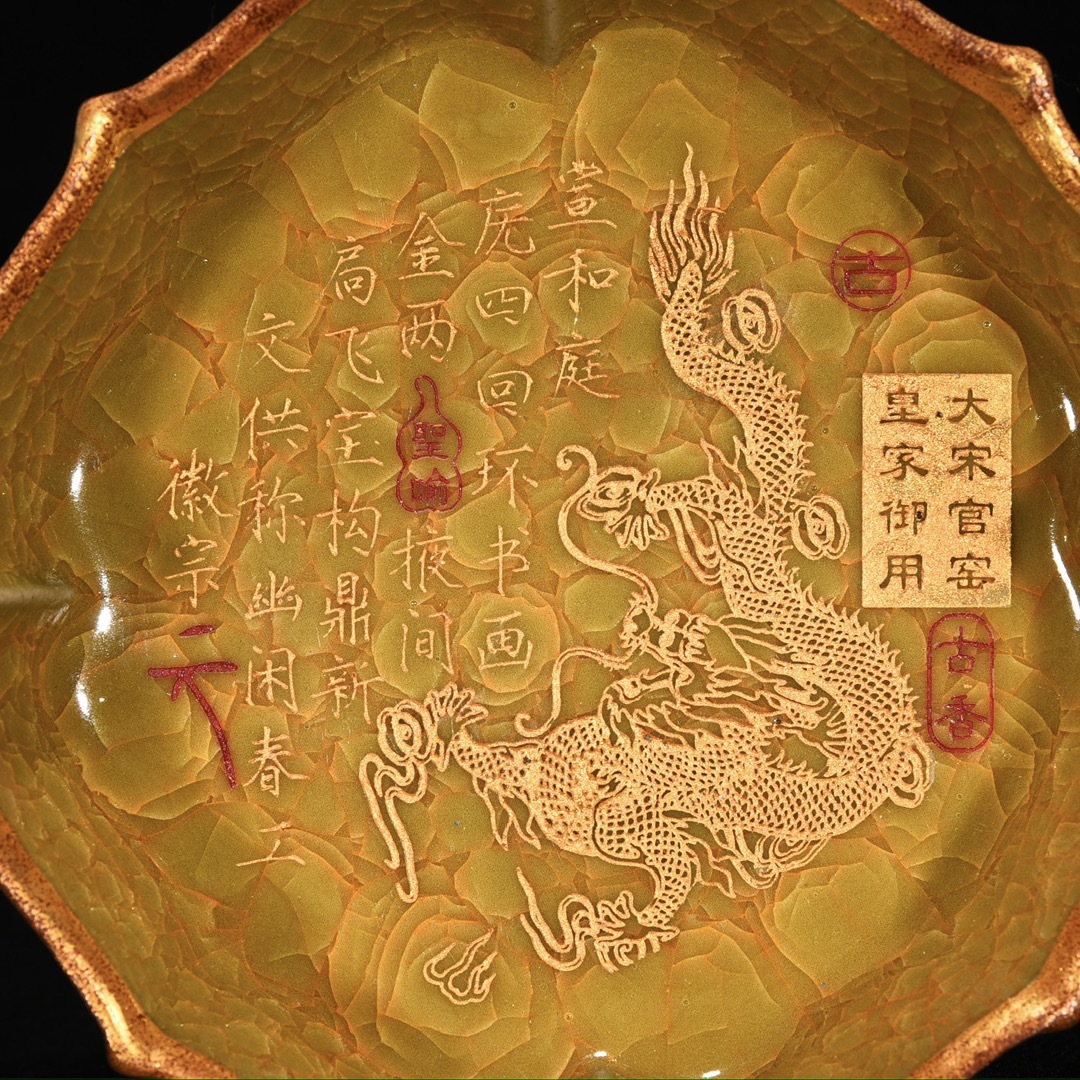 古
大宋官窑
皇家御用
古香
宣和庭
庑四回环书画
金两掖间
聖喻
高飞宝构鼎新
文供称幽闲春工
徽宗